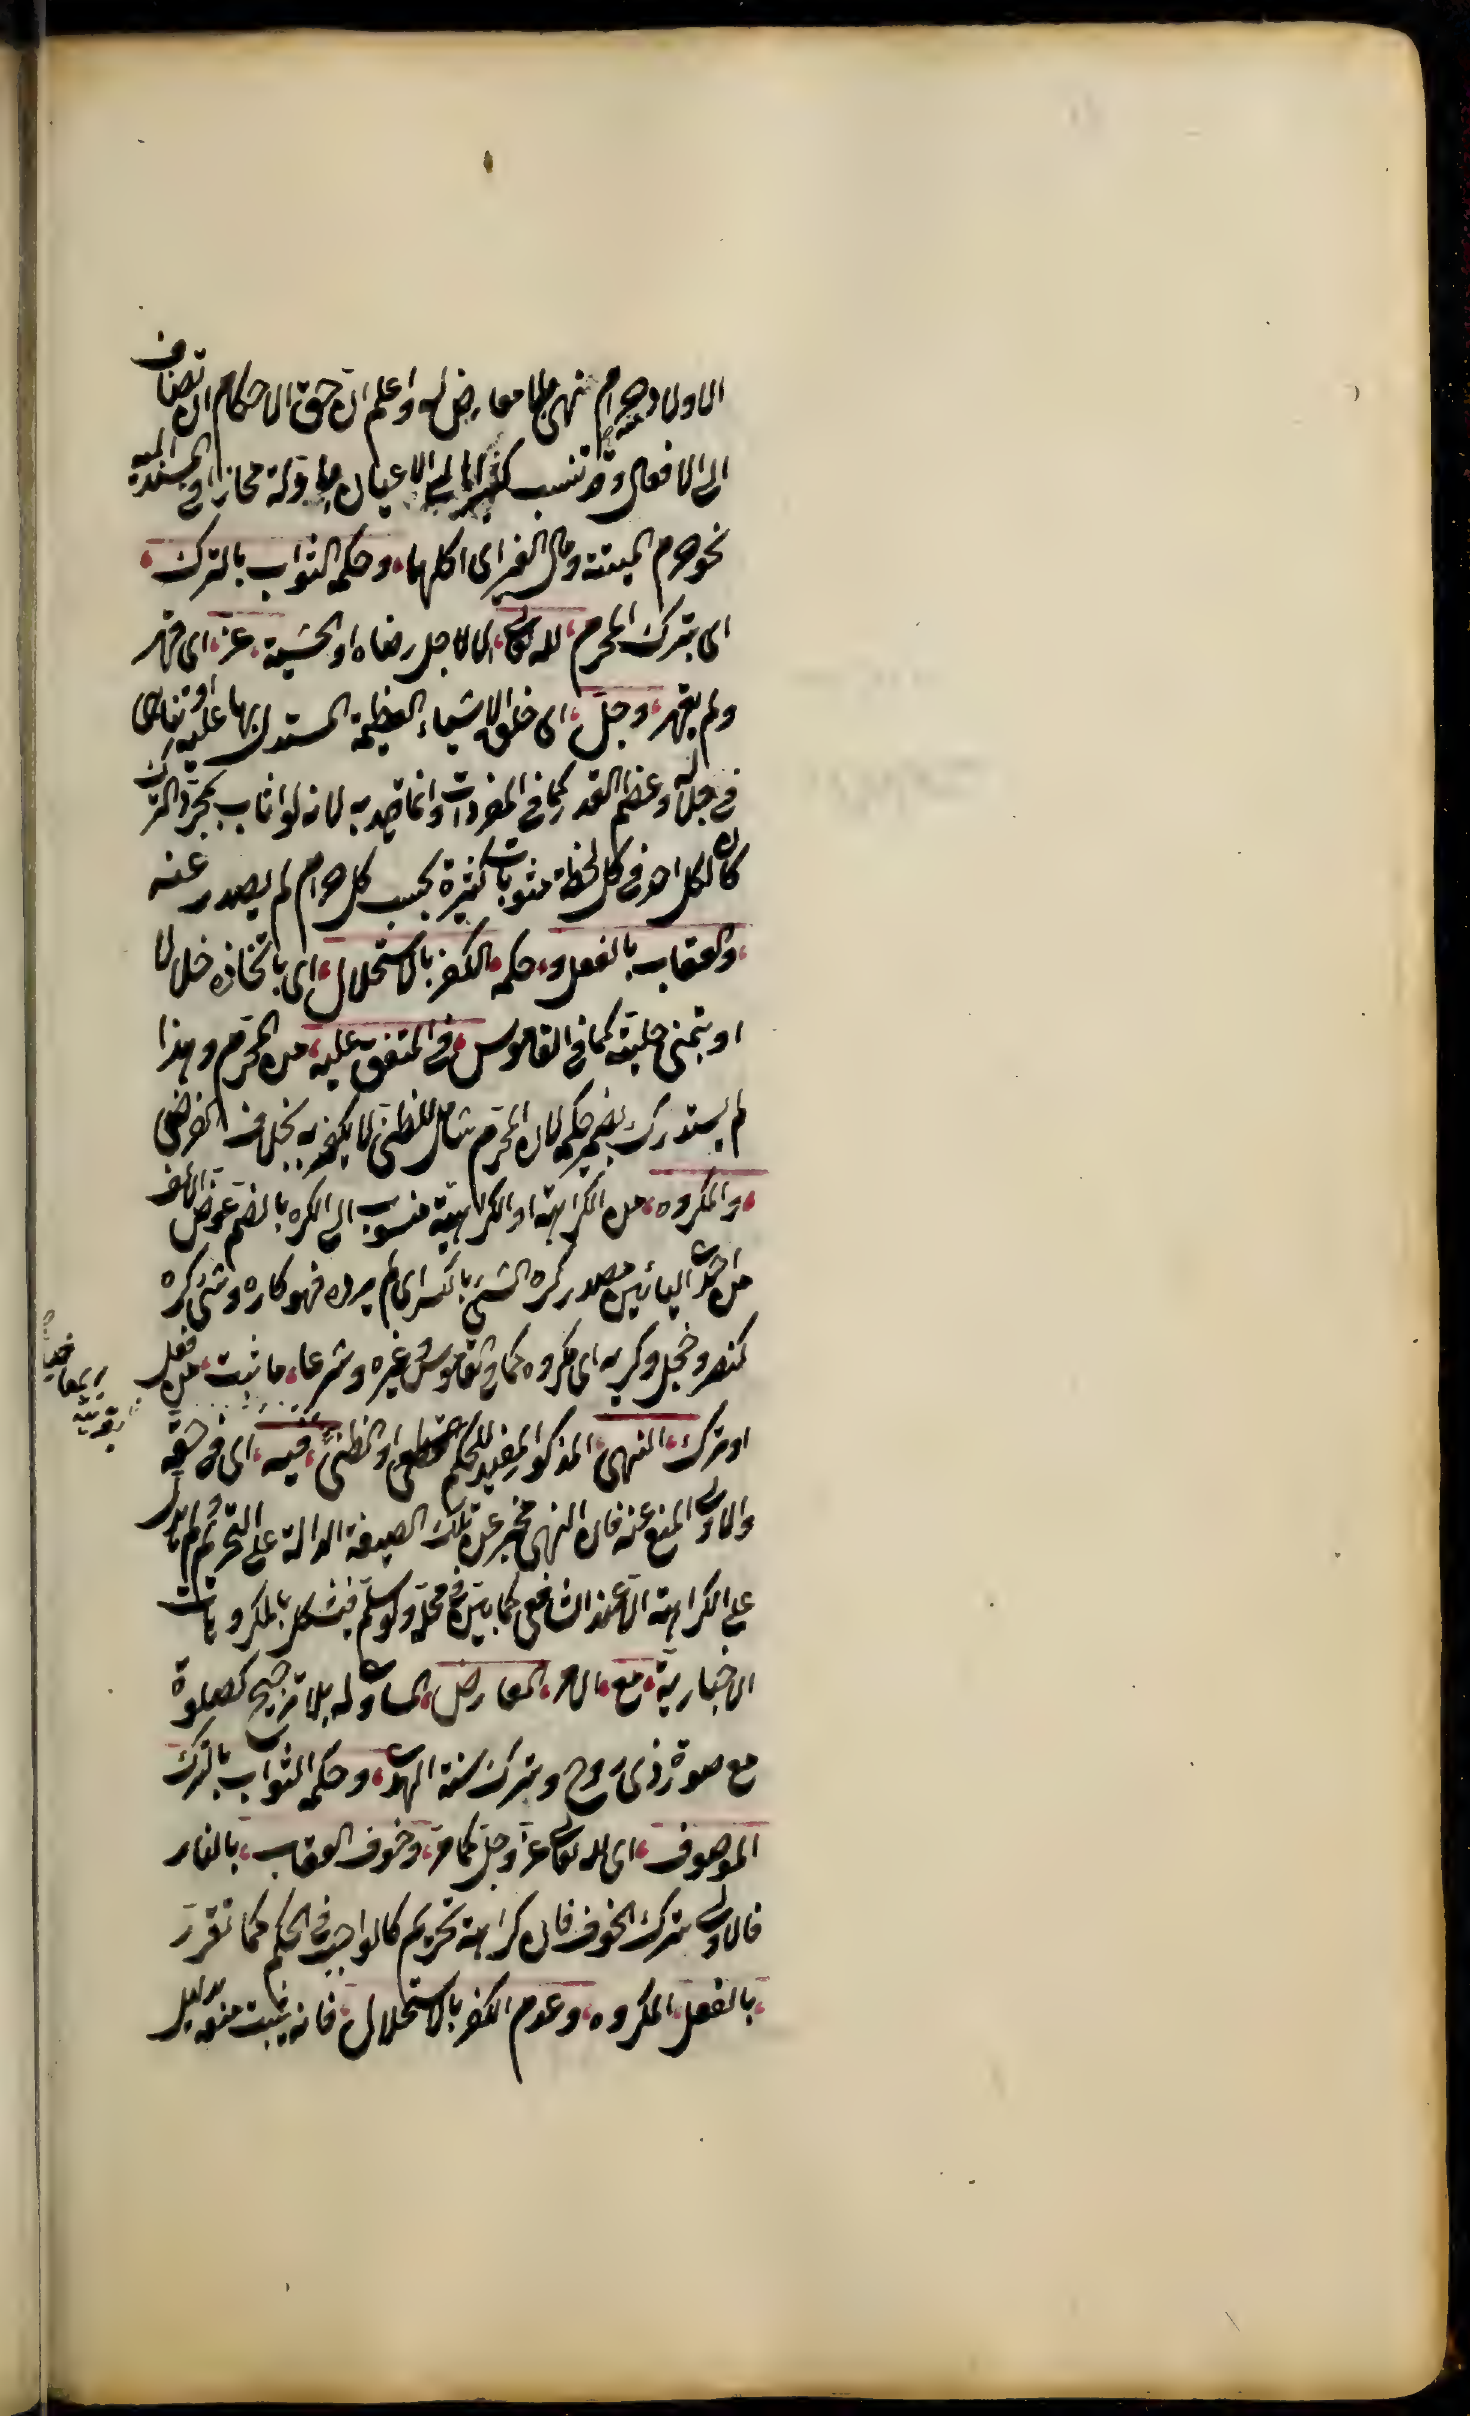 الاولاد حرام نهى بلا معارض له واعلم ان حق الاحكام ان تضاف
الى الافعال وقد تنسب كثيرا الى الاعيان مجازا في المسند اليه
نحو حرم الميتة ومال الغير اى اكلهما وحكمه الثواب بالترك
اى بترك المحرم لله تعالى اى لاجل رضاه او لخشيته عز اى قهر
ولم يقهر وجل اى خلق الاشياء العظيمة المستدل بها عليه او تناهى
في جلاله وعظم القدر كما في المفردات وانما قيد به لانه لو اثاب بمجرد الترك
كان لكل احد في كل لحظة مثوبات كثيرة بحسب كل حرام لم يصدر عنه
والعقاب بالفعل وحكمه الكفر بالاستحلال اى باتخاذه حلالا
او بتمنى حليته كما في القاموس في المتفق عليه من المحرم وهذا
لم يستدرك بضم حكمه لان المحرم شامل للظنى لا يكفر به بخلاف الفرض
والمكروه من الكراهة او الكراهية منسوب الى الكره بالضم عوض الالف
من احدى اليائين مصدر كره الشئ بالكسر اى لم يرده فهو كاره وشئ كره
كنصر وخجل وكريه اى مكروه كما في القاموس وغيره وشرعا ما ثبت من فعل
او ترك النهى المذكور المفيد للحكم القطعى او الظنى فيه اى في حقه
والاولى المنع عنه فان النهى مخبر عن تلك الصيغة الدالة على التحريم لم يدل
على الكراهة الا عند الشافعى كما بين في محله ولو سلم فيشكل بالمكروهات
الاخبارية مع الامر المعارض المساوى له بلا ترجيح كصلوة
مع صورة ذى روح وترك سنة الهدى وحكمه الثواب بالترك
الموصوف اى لله تعالى عز وجل كما مر وخوف العقاب بالنار
فالاولى ترك الخوف فان كراهة تحريم كالواجب في الحكم كما تقرر
بالفعل المكروه وعدم الكفر بالاستحلال فانه يثبت منعه بدليل